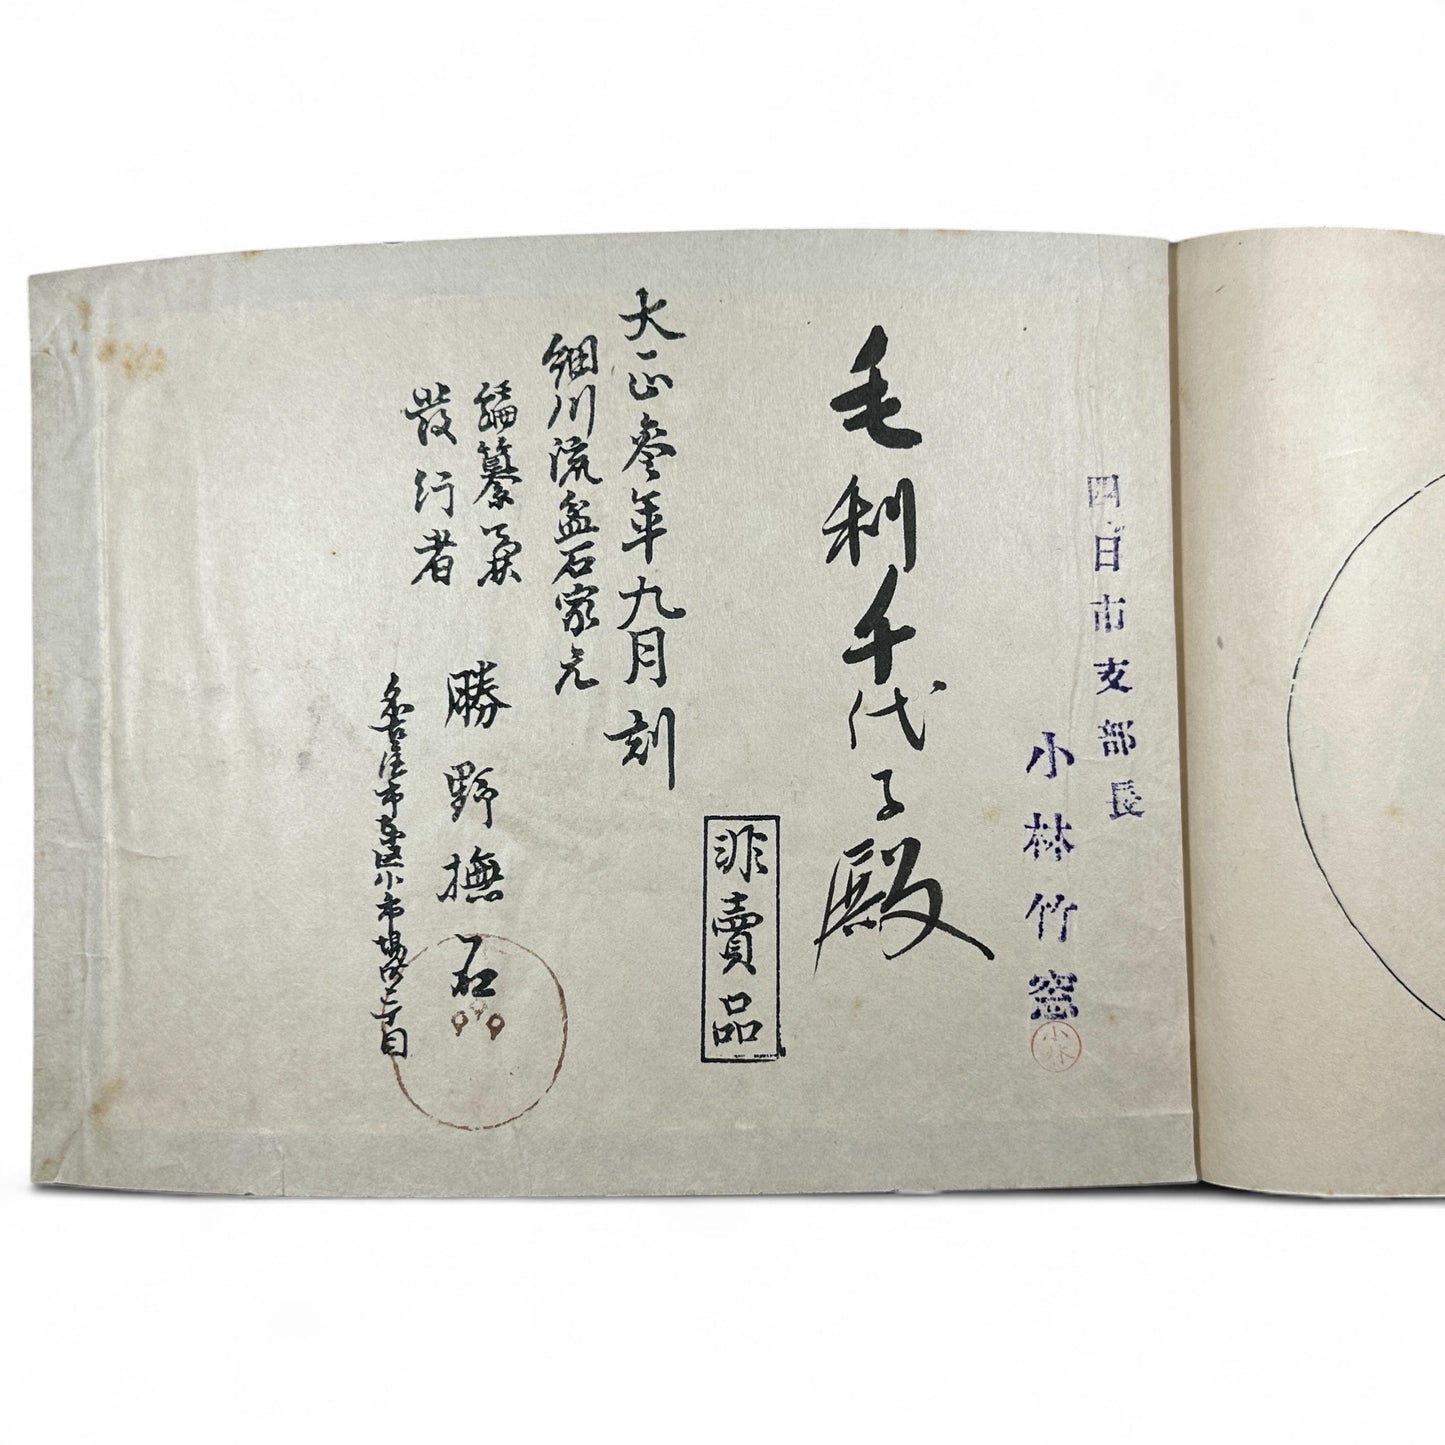 四日市支部長
小林竹窓
小林
毛利千代子殿
非賣品
大正参年九月刻
細川流盆石家元
編纂兼
發行者
勝野撫石
名古屋市東区小市場町二丁目